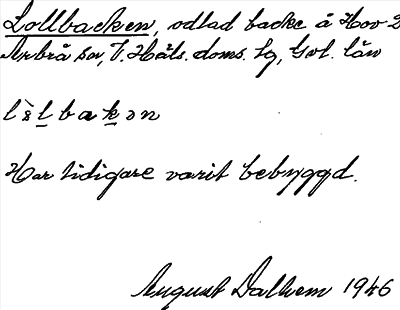 Lollbacken, odlad backe å Hov 2
Arbrå sn, V. Häls. doms. hg, Gvl. län
Har tidigare varit bebyggd.
August Dalhem 1946